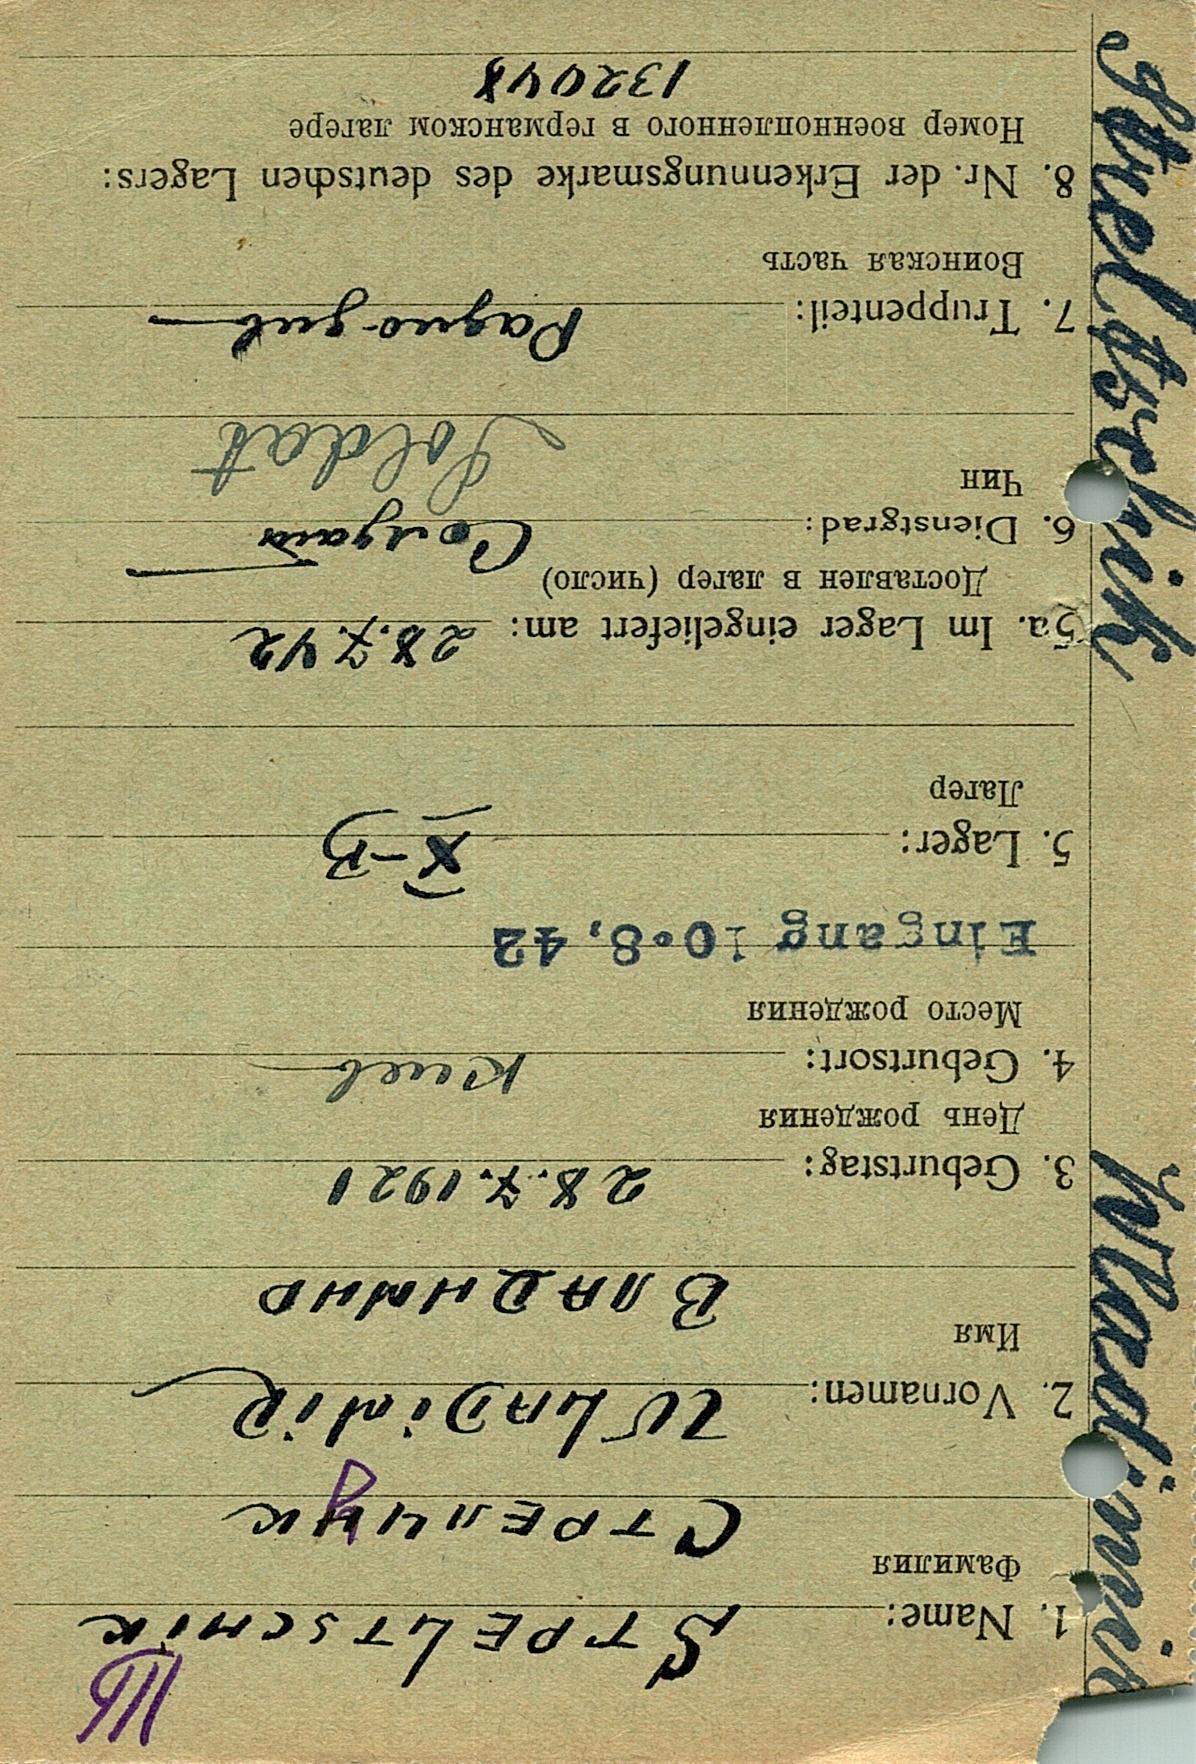 III
1. Name: STPELTSCHIK
Фамилия
СТРЕЛЧУК
2. Vornamen: WLADIMIR
Имя
ВЛАДИМИР
3. Geburtstag: 28.7.1921
День рождения
4. Geburtsort: Киев
Место рождения
Eingang 10.8,42
5. Lager: X-B
Лагер
5a. Im Lager eingeliefert am: 28.7.42
Доставлен в лагер (число)
6. Dienstgrad: Солдат
Чин
Soldat
7. Truppenteil: Радио-див
Воинская часть
8. Nr. der Erkennungsmarke des deutschen Lagers:
Номер военнопленного в германском лагере
132048
Streltschik Wladimir